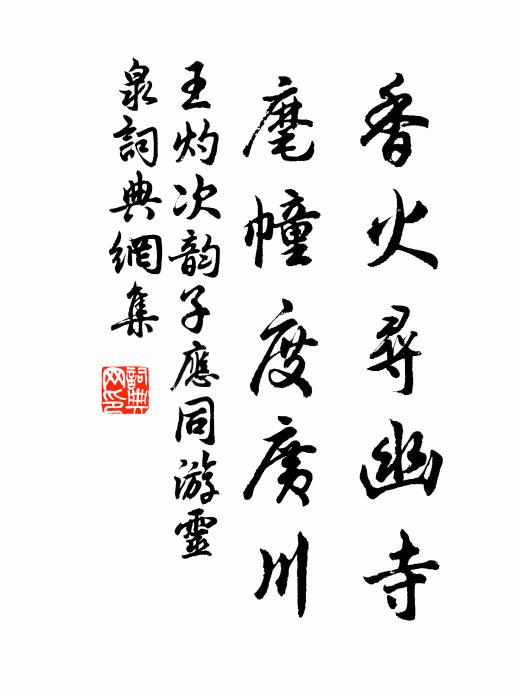 香火尋幽寺
麾幢度廣川
王灼次韵子應同游靈
泉詞典網集
詞典网印